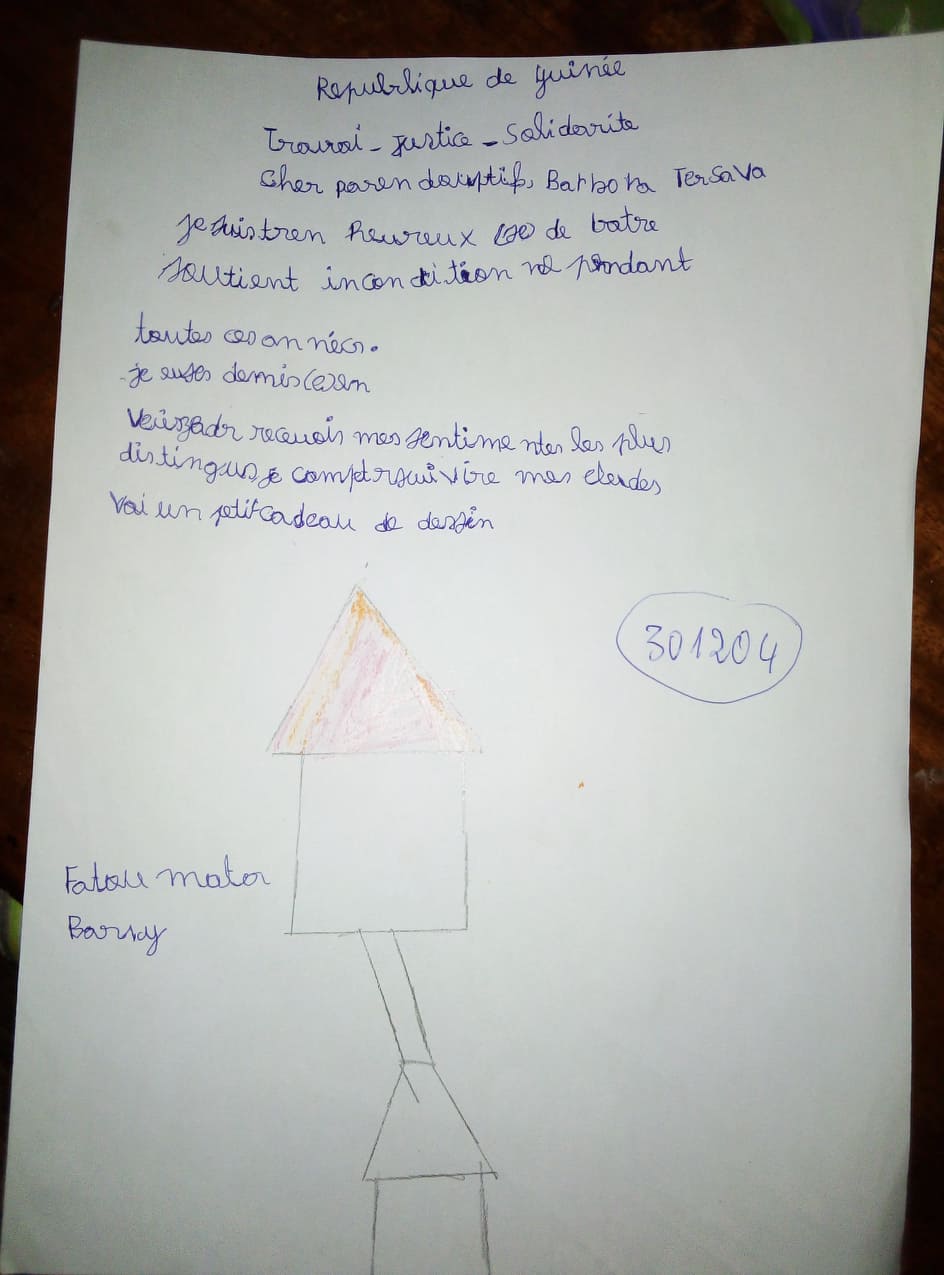 Republique de guinée
Travai - justice - Solidarite
Cher paren dauptifs, Barbora Tersava
je suis tren heureux de batre
soutient incondition nel pendant
toutes ces années.
je suis demis(e)en
recevois mes sentime ntes les plus
distingus je compt suivire mes etudes
Voi un petit cadeau de dessin
301204
Fatou mata
Barry